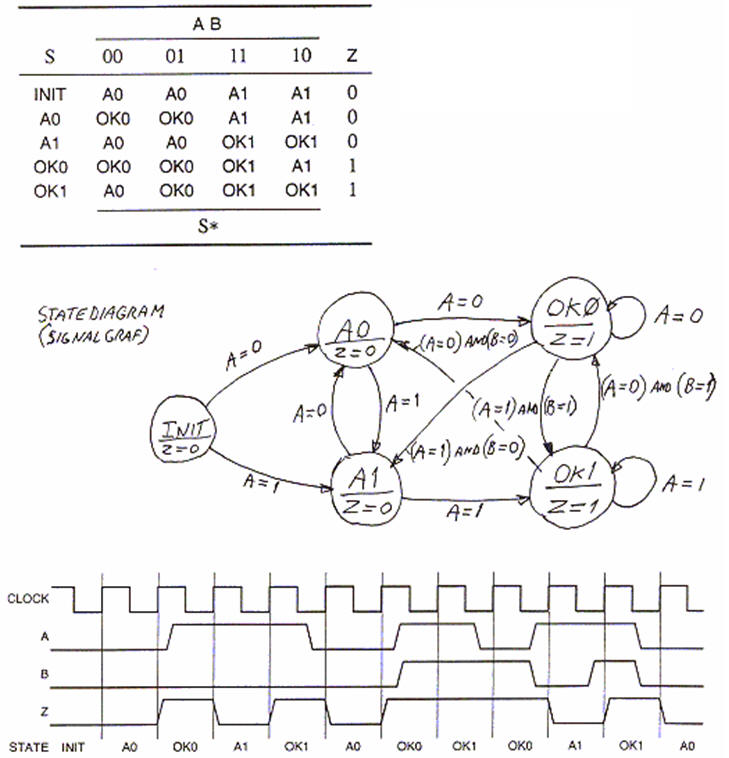 A B
S 00 01 11 10 Z
INIT A0 A0 A1 A1 0
A0 OK0 OK0 A1 A1 0
A1 A0 A0 OK1 OK1 0
OK0 OK0 OK0 OK1 A1 1
OK1 A0 OK0 OK1 OK1 1
S*
STATE DIAGRAM
(SIGNAL GRAF)
A0
Z=0
A=0
OK0
Z=1
A=0
(A=0) AND (B=0)
A=0
INIT
Z=0
A=0
A=1
(A=1) AND (B=1)
(A=0) AND (B=1)
(A=1) AND (B=0)
A=1
A1
Z=0
A=1
OK1
Z=1
A=1
CLOCK
A
B
Z
STATE INIT A0 OK0 A1 OK1 A0 OK0 OK1 OK0 A1 OK1 A0